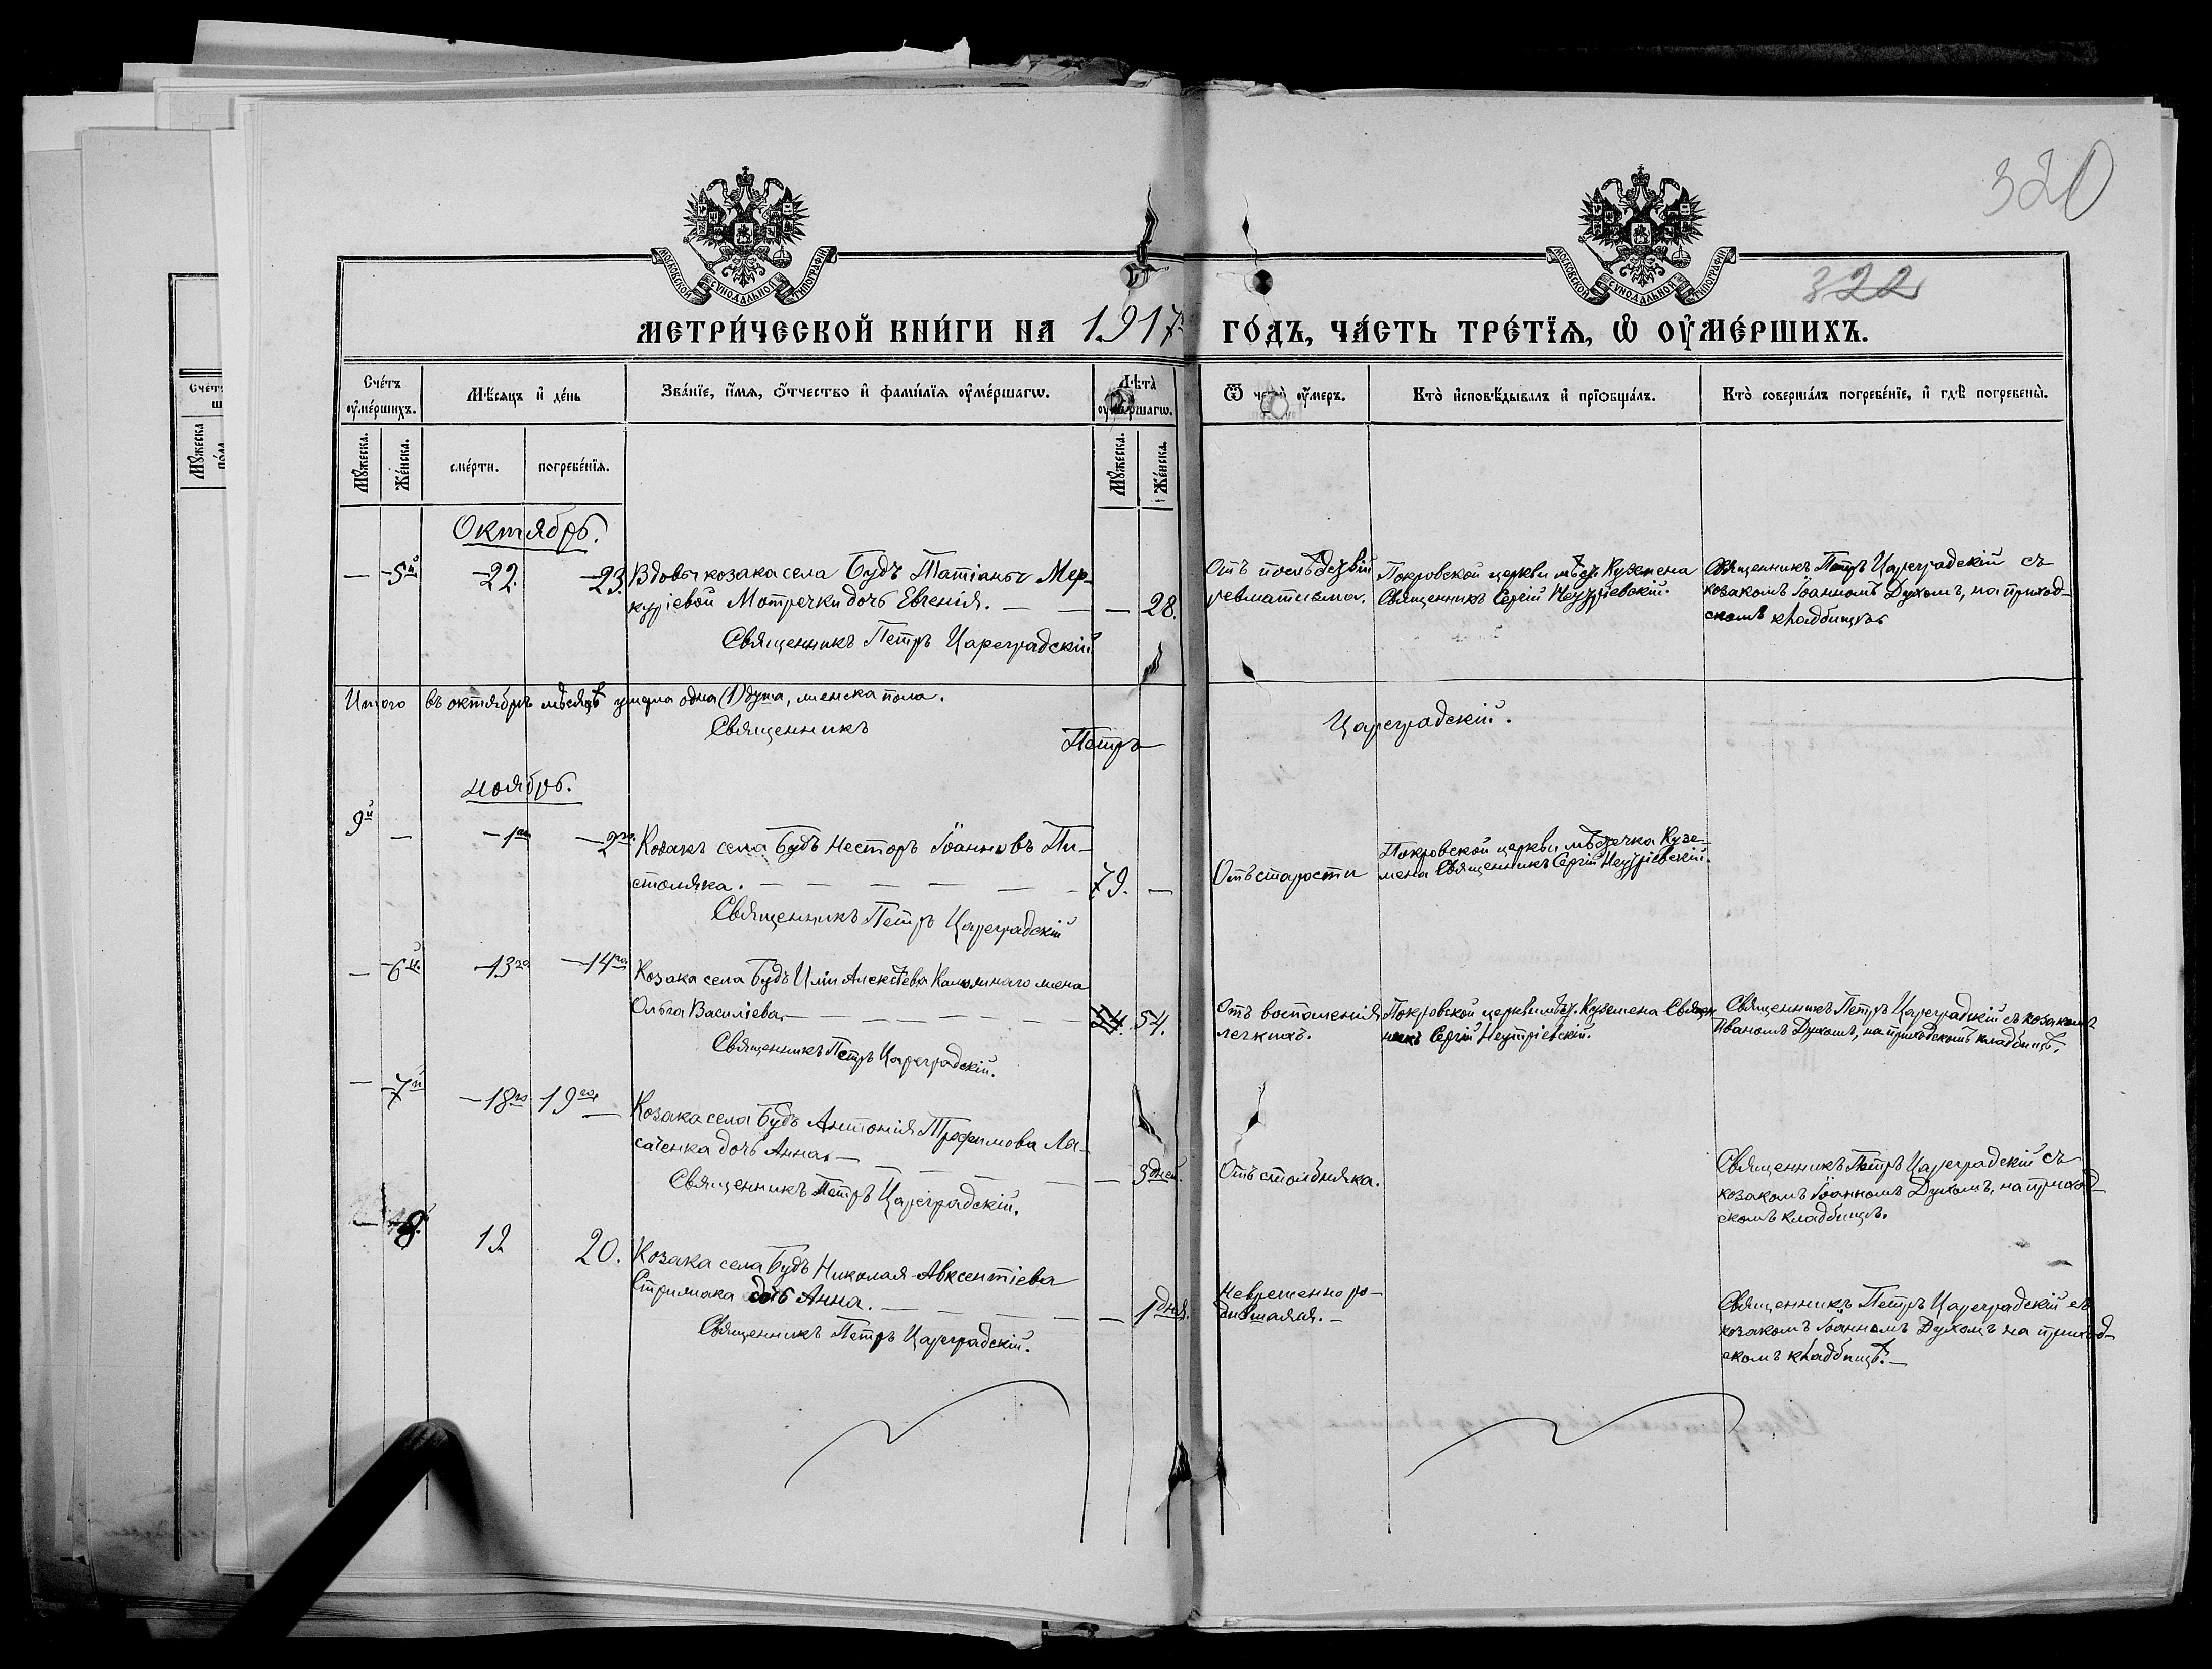 320
322
МОСКОВСКОЙ СУНОДАЛЬНОЙ ТИПОГРАФІИ
МОСКОВСКОЙ СУНОДАЛЬНОЙ ТИПОГРАФІИ
МЕТРИ́ЧЕСКОЙ КНИ́ГИ НА 1917 ГО́ДЪ, ЧА́СТЬ ТРЕ́ТЇѦ, Ѡ҆ ОУ҆МЕ́РШИХЪ.
Сче́тъ оу҆ме́ршихъ.
Мѣ́сяцъ и҆ де́нь
Зва́нїе, и҆́мѧ, ѻ҆́тчество и҆ фами́лїѧ оу҆ме́ршагѡ.
Лѣта̀ оу҆ме́ршагѡ.
Ѿ чегѡ̀ оу҆́меръ.
Кто̀ и҆сповѣ́дывалъ и҆ прїѡбща́лъ.
Кто̀ соверша́лъ погребе́нїе, и҆ гдѣ̀ погребены̀.
Мꙋ́жеска.
Же́нска.
сме́рти.
погребе́нїѧ.
Мꙋ́жеска.
Же́нска.
Октябрь.
— 5й 22. 23. Вдовы козака села Будъ Татіаны Мер-
куріевой Мотречки дочь Евгенія. — — — 28.
Священникъ Петръ Цареградскій
Отъ послѣдствій
ревматизма.
Покровской церкви мѣст. Куземена
Священникъ Сергій
Священникъ Петръ Цареградскій съ
козакомъ Іоанномъ Духомъ, на приход-
скомъ кладбищѣ
Итого въ октябрѣ мѣсяцѣ умерла одна (1) душа, женска пола.
Священникъ Петръ Цареградскій.
Ноябрь.
9й — 1го 2го Козакъ села Будъ Несторъ Іоанновъ Пи-
столяка. — — — — — — 79. —
Священникъ Петръ Цареградскій
Отъ старости
Покровской церкви мѣстечка Кузе-
мена Священникъ Сергій
— 6й. 13го 14го Козака села Будъ Иліи Алексѣева жена
Ольга Василіева. — — — — — 54. 54.
Священникъ Петръ Цареградскій.
Отъ воспаленія
легкихъ.
Покровской церкви мѣст. Куземена Священ
никъ Сергій
Священникъ Петръ Цареградскій съ козакомъ
Иваномъ Духомъ, на приходскомъ кладбищѣ.
— 7й 18го 19го Козака села Будъ Антонія Трофимова Ла-
саченка дочь Анна. — — — — — 3 дней.
Священникъ Петръ Цареградскій.
Отъ столбняка.
Священникъ Петръ Цареградскій съ
козакомъ Іоанномъ Духомъ, на приход-
скомъ кладбищѣ.
— 8. 19 20. Козака села Будъ Николая Авксентіева
Стрижака дочь Анна. — — — — — 1 дня.
Священникъ Петръ Цареградскій.
Невременно ро-
дившаяся. —
Священникъ Петръ Цареградскій съ
козакомъ Іоанномъ Духомъ на приход-
скомъ кладбищѣ. —